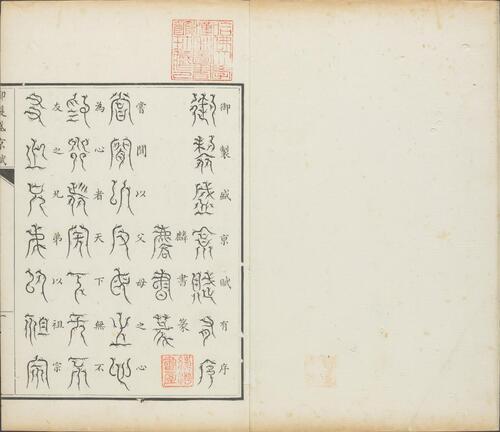 御製盛京賦有序
麟書篆
嘗聞以父母之心
為心者天下無不
友之兄弟以祖宗
御製盛京賦